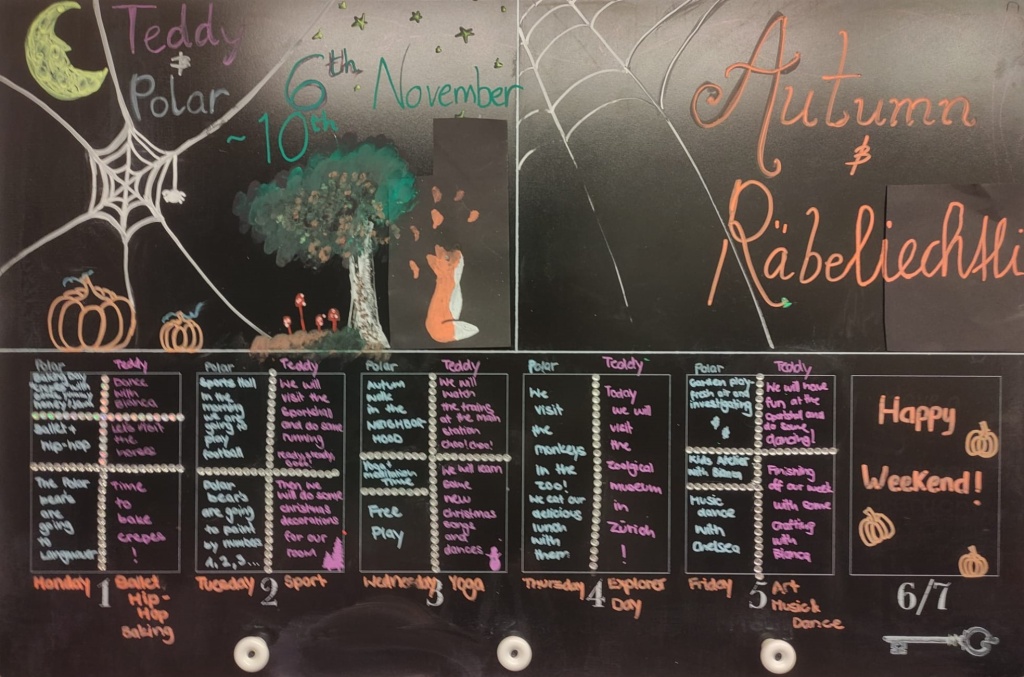 Teddy
&
Polar
6th November
~10th
Autumn
&
Räbeliechtli
Polar
Teddy
Dance
with
Bianca
Ballet +
hip-hop
Let's visit
the
horses
The Polar
bear's
are
going
to
Langnauer
Time
to
bake
crepes
!
Monday 1 Ballet,
Hip-
Hop
Baking
Polar
Sports Hall
in the
morning
we are
going to
play
football
Teddy
We will
visit the
sportshall
and do some
running
ready, steady,
Polar
bear's
are going
to paint
by number
1, 2, 3...
Then we
will do some
christmas
decorations
for our
room
Tuesday 2 Sport
Polar
Autumn
walk
in the
NEIGHBOR
HOOD
Teddy
We will
watch
the trains
at the main
station
choo! choo!
Yoga +
Time
Free
Play
We will learn
some
new
christmas
songs
and
dances
Wednesday 3 Yoga
Polar
We
visit
the
monkeys
in the
zoo!
We eat our
delicious
lunch
with
them
Teddy
Today
we will
visit
the
zoolgical
museum
in
Zürich
!
Thursday 4 Explorer
Day
Polar
Garden play-
fresh air and
investigating
Teddy
We will have
fun at the
sportshall and
do some
dancing!
Kids Atelier
with
Music
dance
with
Chelsea
Finishing
off our week
with some
crafting
with
Bianca
Friday 5 Art
Music &
Dance
Happy
Weekend!
6/7